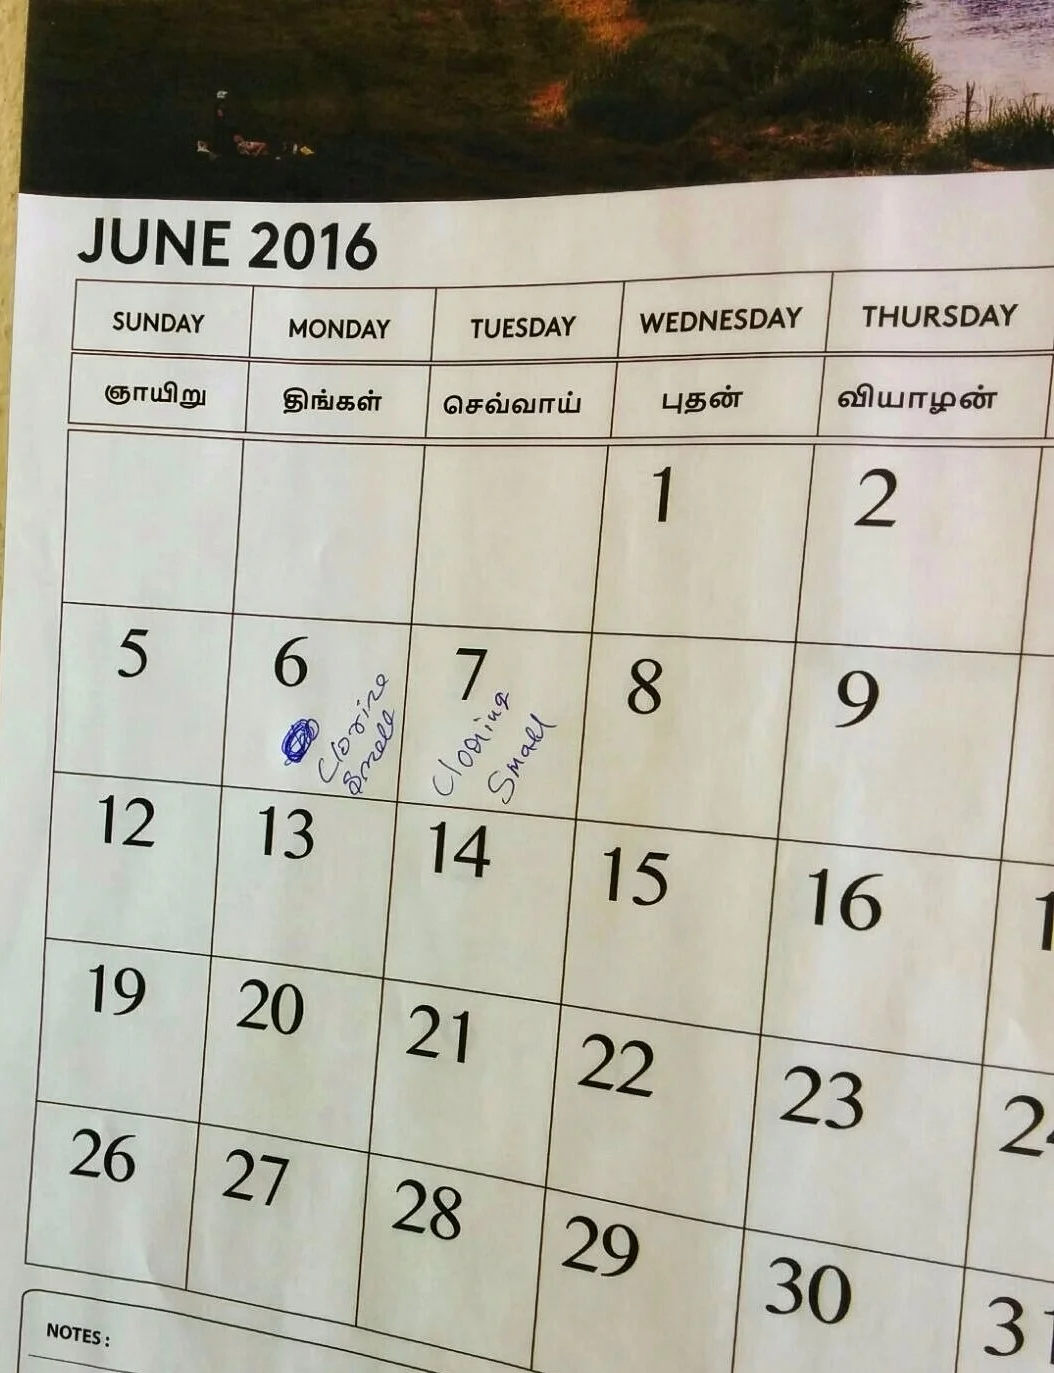 JUNE 2016
SUNDAY MONDAY TUESDAY WEDNESDAY THURSDAY
ஞாயிறு திங்கள் செவ்வாய் புதன் வியாழன்
1 2
5 6 7 8 9
Clorine
Smell
Clooring
Smell
12 13 14 15 16
19 20 21 22 23
26 27 28 29 30 31
NOTES :